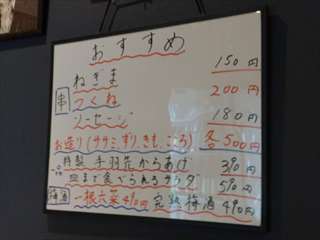 おすすめ
串 ねぎま 150円
つくね 200円
ソーセージ 180円
お造り(ササミ、ずり、きも、こころ) 各500円
一品 特製 手羽先からあげ 390円
皿まで食べられるサラダ 590円
梅酒 一根六菜490円 完熟梅酒490円